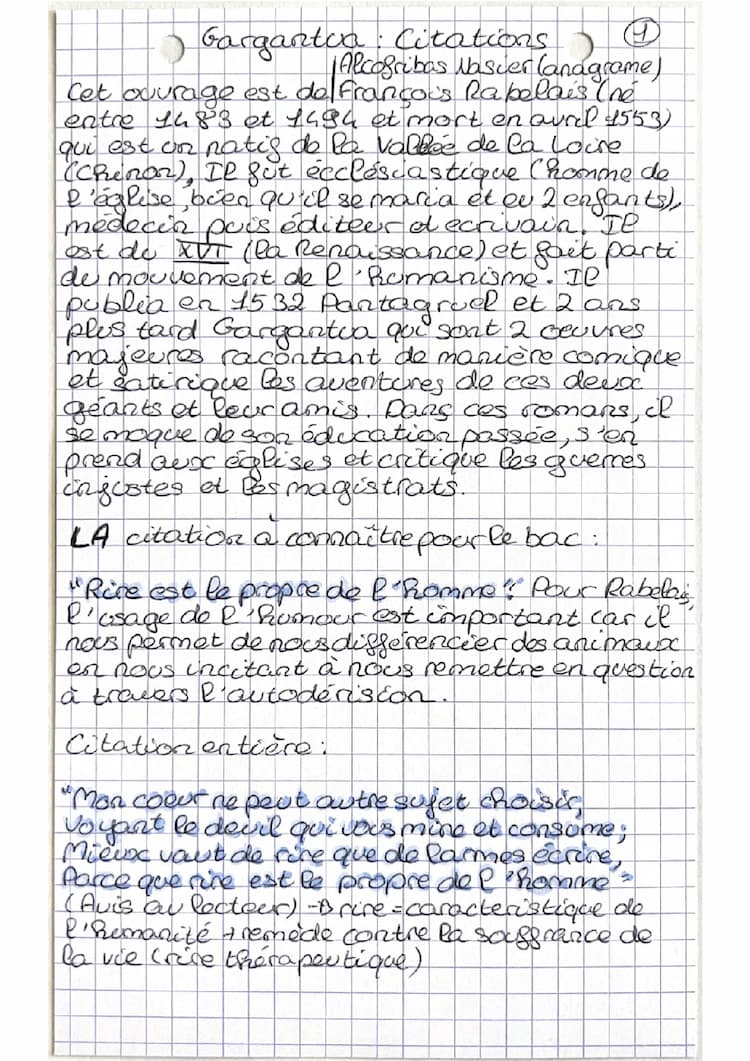 Gargantua : Citations 1
Alcofribas Nasier (anagrame)
Cet ouvrage est de François Rabelais (né
entre 1483 et 1494 et mort en avril 1553)
qui est un natif de la Vallée de la Loire
(Chinon), Il fut ecclésiastique (homme de
l'église, bien qu'il se maria et eu 2 enfants),
médecin puis éditeur et ecrivain. Il
est du XVI (la Renaissance) et fait parti
du mouvement de l'Humanisme. Il
publia en 1532 Pantagruel et 2 ans
plus tard Gargantua qui sont 2 oeuvres
majeures racontant de manière comique
et satirique les aventures de ces deux
géants et leur amis. Dans ces romans, il
se moque de son éducation passée, s'en
prend aux églises et critique les guerres
injustes et les magistrats.
LA citation à connaître pour le bac :
"Rire est le propre de l'homme". Pour Rabelais,
l'usage de l'humour est important car il
nous permet de nous différencier des animaux
en nous incitant à nous remettre en question
à travers l'autodérision.
Citation entière :
"Mon coeur ne peut autre sujet choisir,
Voyant le deuil qui vous mine et consume;
Mieux vaut de rire que de larmes écrire,
Parce que rire est le propre de l'homme"
(Avis au lecteur) → rire = caracteristique de
l'Humanité + remède contre la souffrance de
la vie (rire thérapeutique)